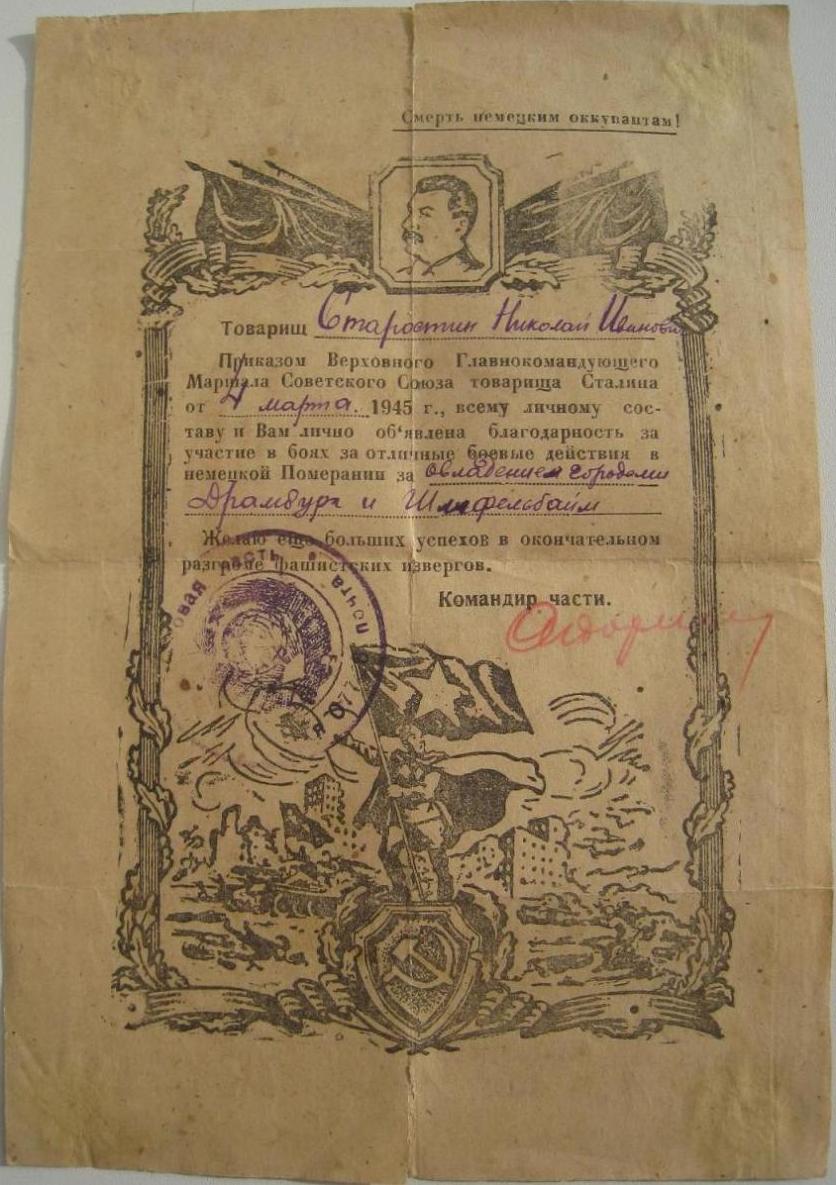 Смерть немецким оккупантам!
Товарищ Старостин Николай Иванови
Приказом Верховного Главнокомандующего
Маршала Советского Союза товарища Сталина
от 4 марта 1945 г., всему личному сос-
таву и Вам лично об‘явлена благодарность за
участие в боях за отличные боевые действия в
немецкой Померании за овладением городами
Драмбург и Шифельбайм
Желаю еще больших успехов в окончательном
разгроме фашистских извергов.
Командир части.
овая часть почта